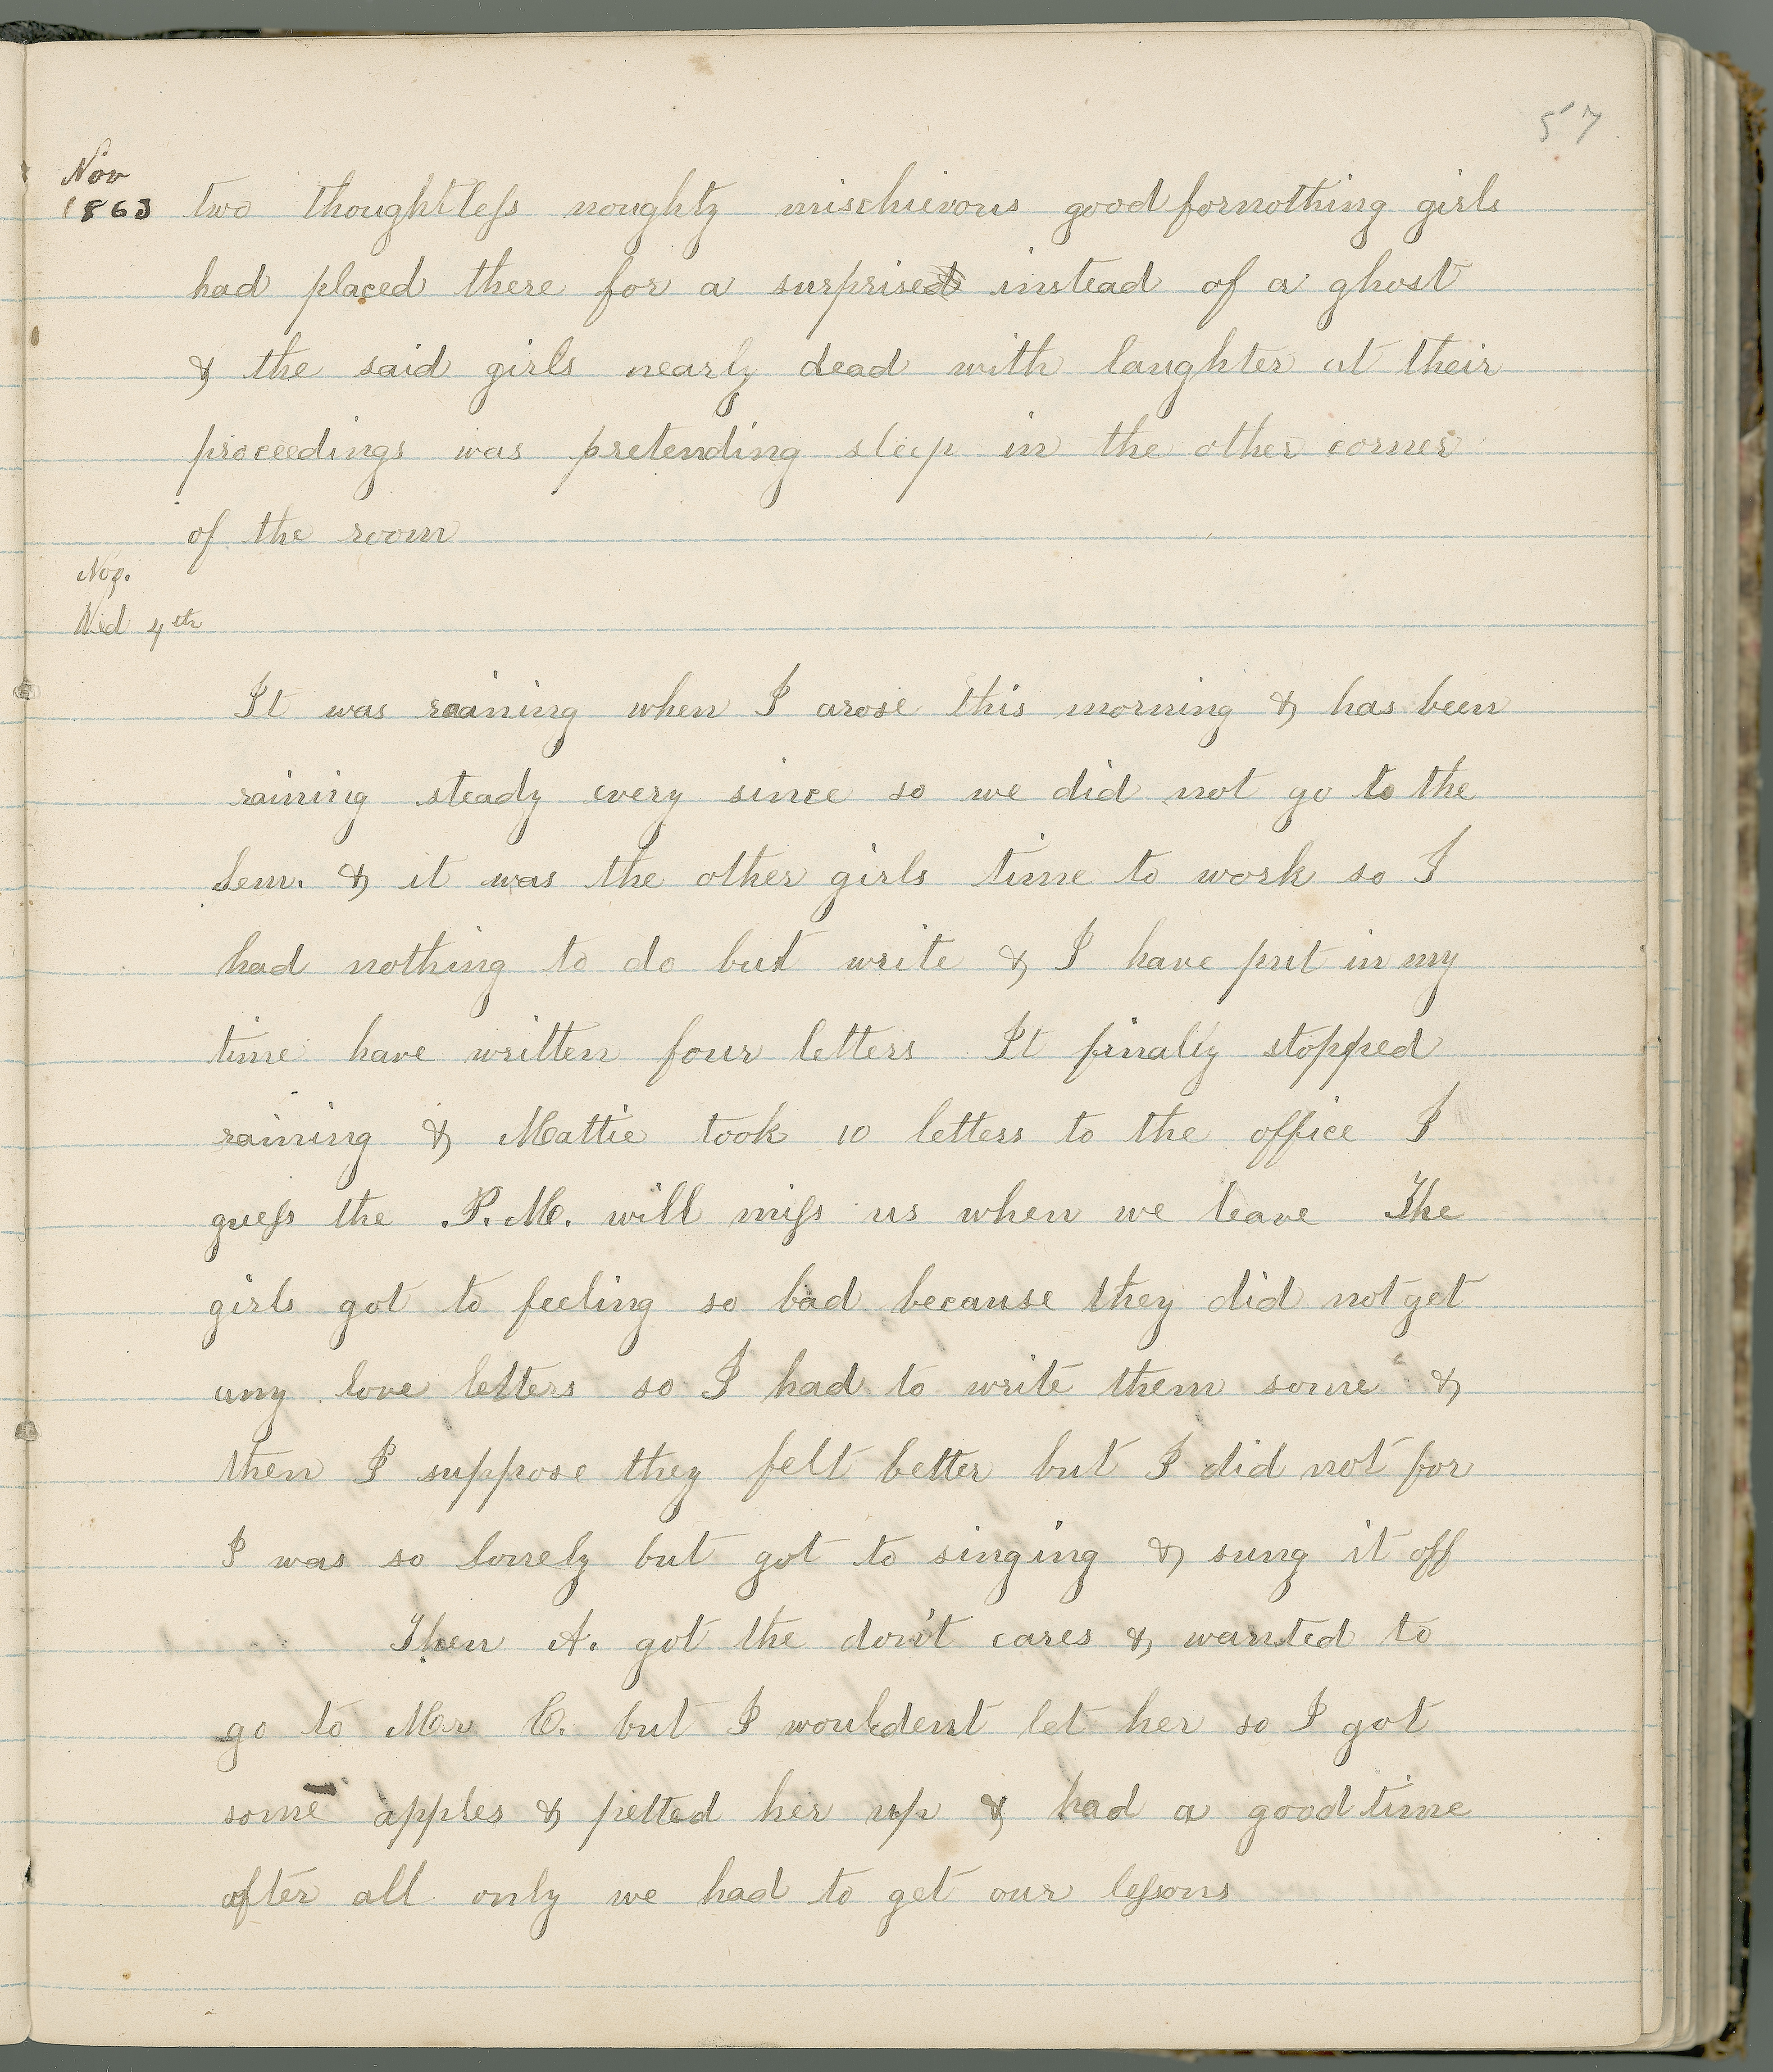 57
Nov
1863 two thoughtless noughty mischievous good fornothing girls
had placed there for a surprise instead of a ghost
& the said girls nearly dead with laughter at their
proceedings was pretending sleep in the other corner
of the room
Nov.
Wed 4th
It was raining when I arose this morning & has been
raining steady every since so we did not go to the
Sem. & it was the other girls time to work so I
had nothing to do but write & I have put in my
time have written four letters It finally stopped
raining & Mattie took 10 letters to the office I
guess the P.M. will miss us when we leave The
girls got to feeling so bad because they did not get
any love letters so I had to write them some &
then I suppose they felt better but I did not for
I was so lonely but got to singing & sung it off
Then A. got the don't cares & wanted to
go to Mr C. but I wouldent let her so I got
some apples & petted her up & had a good time
after all only we had to get our lessons